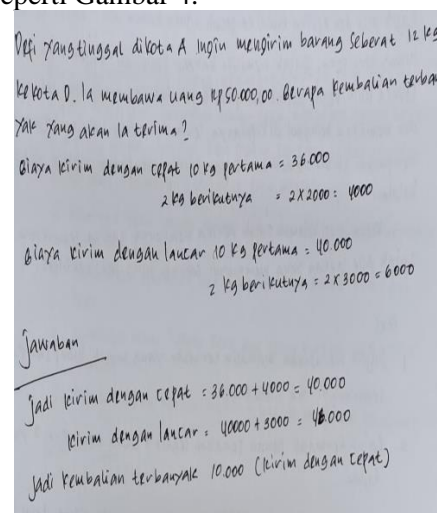 seperti Gambar 4.
Defi yang tinggal dikota A ingin mengirim barang seberat 12 kg
kekota D. Ia membawa uang Rp 50.000,00. Berapa kembalian terban
yak yang akan Ia terima?
Biaya kirim dengan cepat 10 kg pertama = 36.000
2 kg berikutnya = 2 x 2000 = 4000
Biaya kirim dengan lancar 10 kg pertama = 40.000
2 kg berikutnya = 2 x 3000 = 6000
Jawaban
Jadi kirim dengan cepat = 36.000 + 4000 = 40.000
kirim dengan lancar = 40000 + 3000 = 46.000
Jadi kembalian terbanyak 10.000 (kirim dengan cepat)